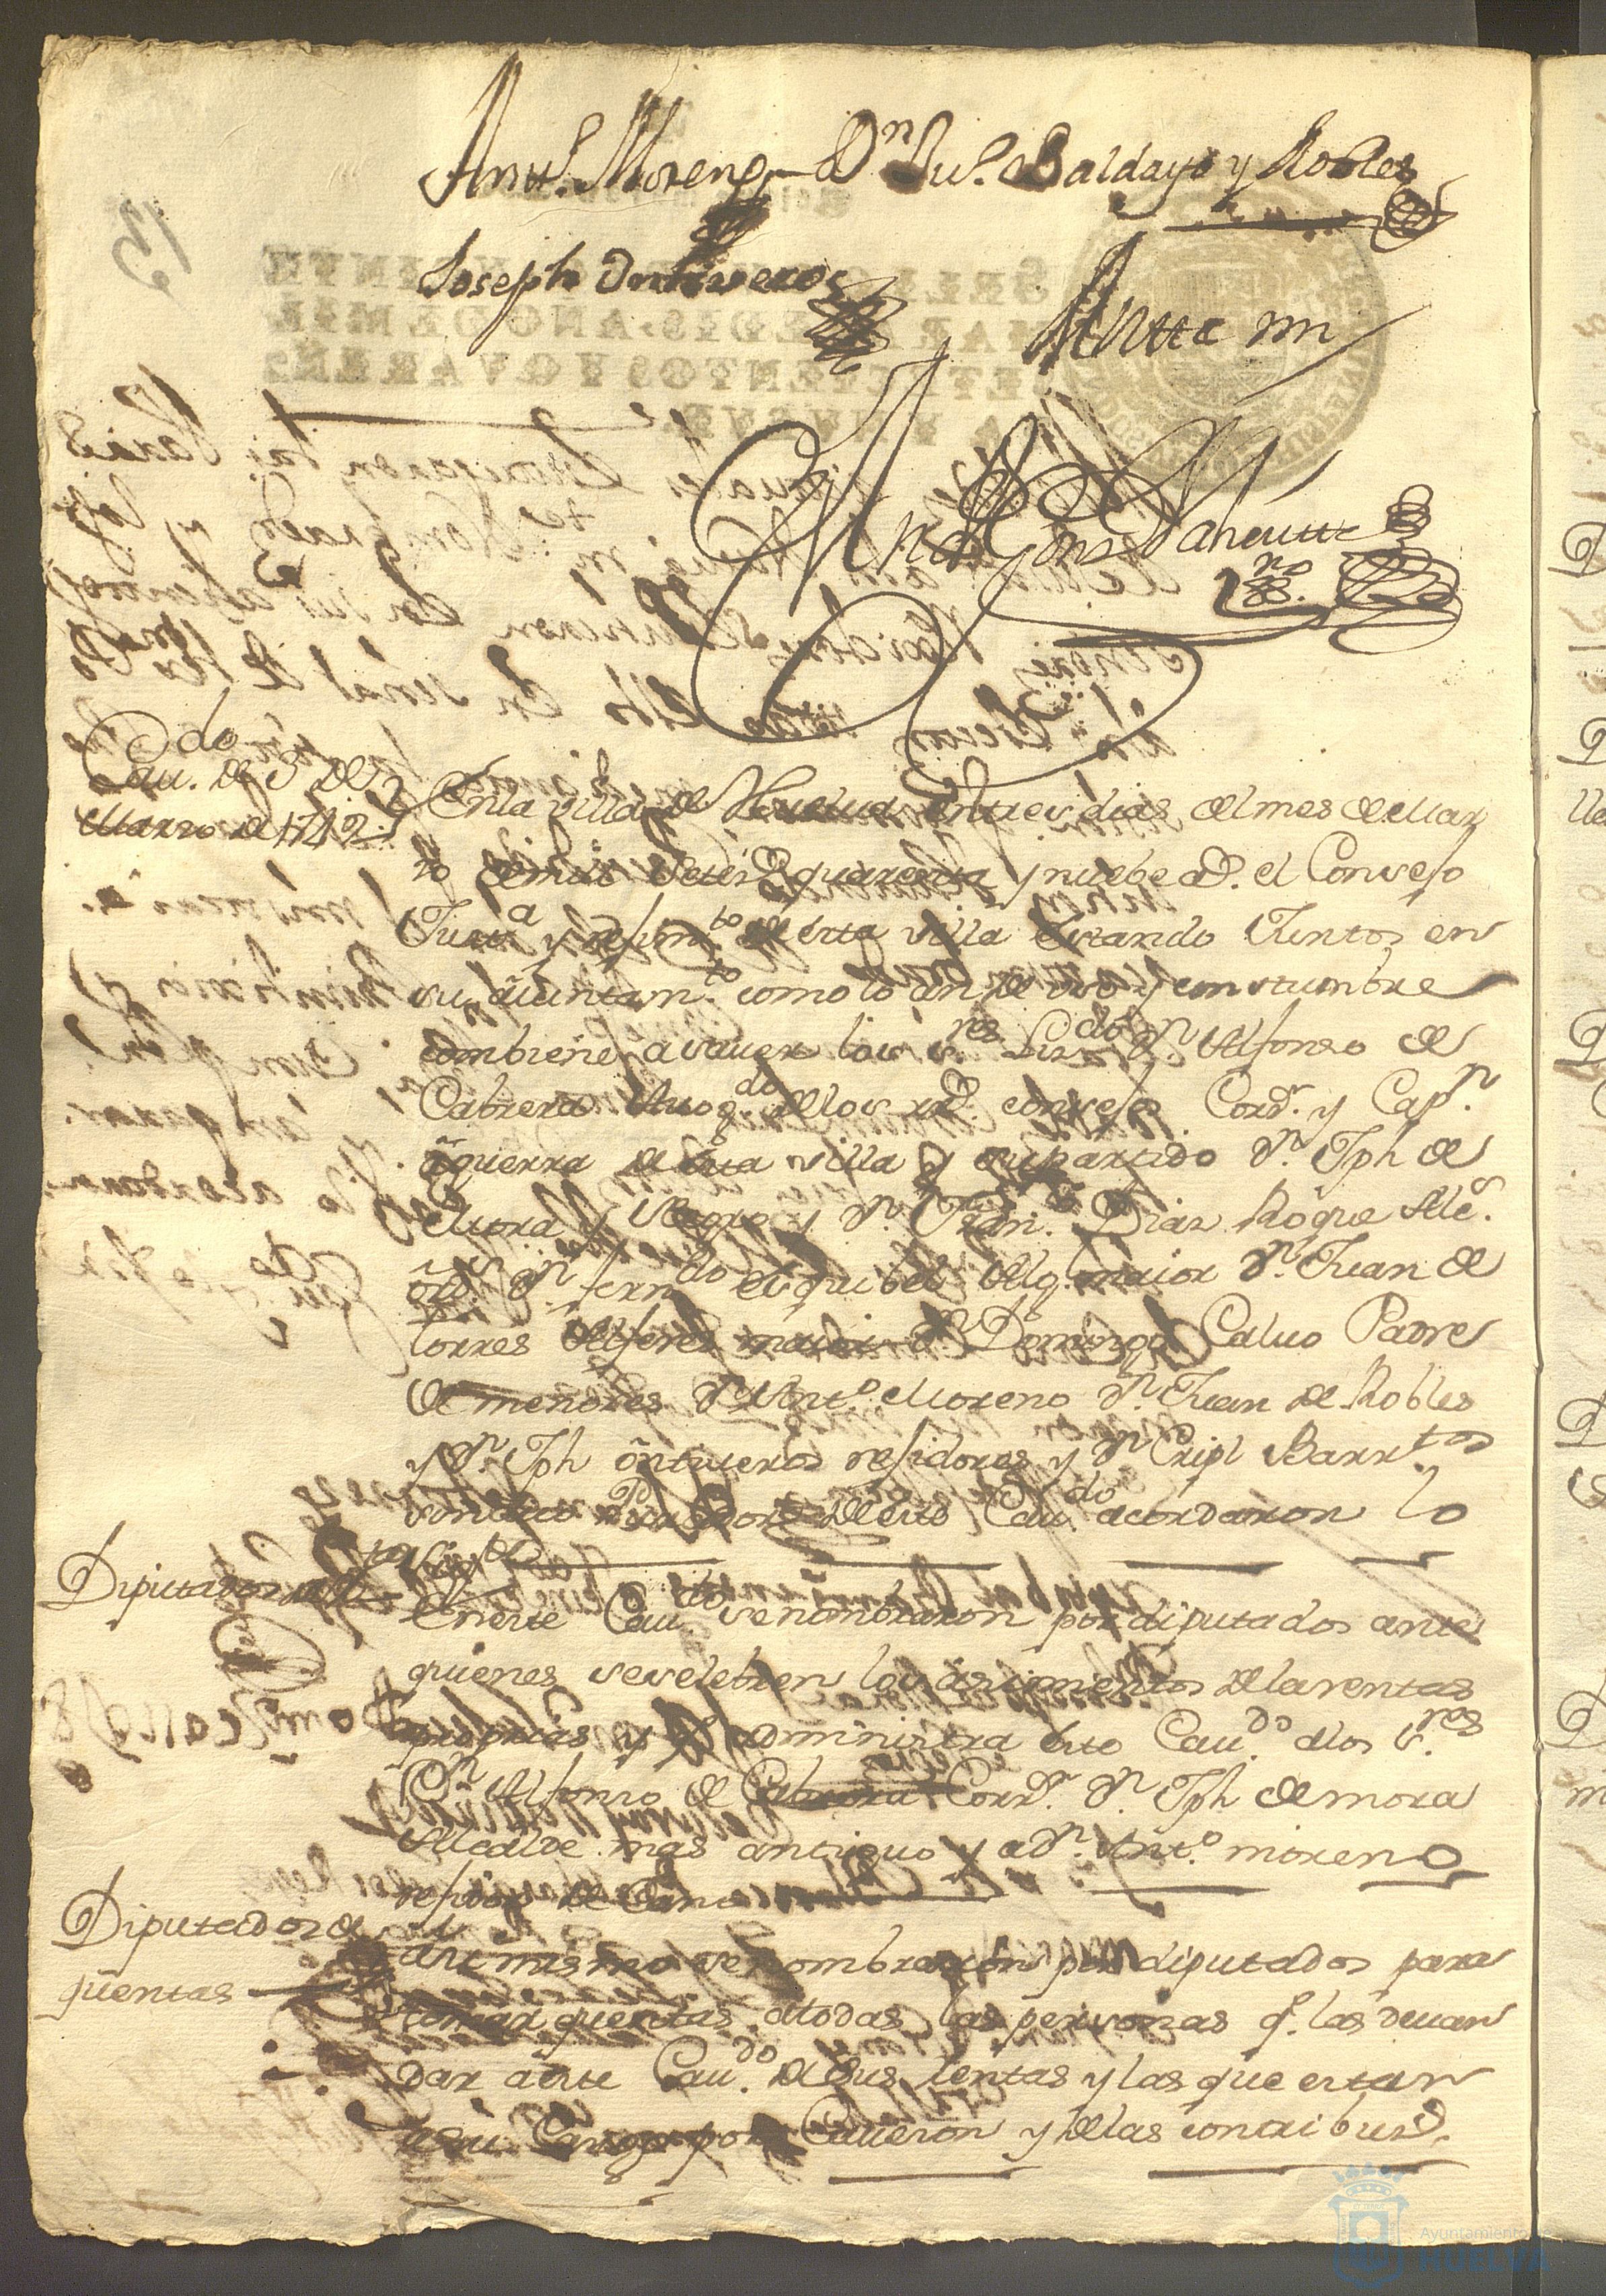 Antº. Moreno Dn Juº. Baldayo y Robles
Joseph Ontiveros
Antte mi
Cau.do de 3 de
Marzo de 1749
En la villa de Huelva en tres dias del mes de Mar
zo de mill setesº quarenta y nuebe aº. el Consejo
Justa y rejimto de esta villa estando Juntos en
su aiuntamto como lo an de uso y constumbre
combiene a sauer los sres Lizdo Dn Alfonso de
Cabrera Auogdo de los rs. consejos Corrr. y Capn
a guerra de esta villa y su partido Dn. Jph de
Mora y Negro y Dn. Fran.co Diaz Roque Alles.
ords Dn ferndo esquibel Alg. maior Dn. Juan de
torres Alferes maior Dn. Domingo Caluo Padre
de menores Dn Antº. Moreno Dn. Juan de Robles
y Dn. Jph ontiueros residores y Dn Cripl Barrtos
sindico Procurador de este Cau.do acordaron lo
siguite
Diputados
En este Cau.do se nombraron por diputados ante
quienes se seletren los asimientos de la rentas
propias y q administra este Cau.do a los s.res
Dn Alfonso de Cabrera Corrr. Dn. Jph de mora
Alcalde mas antiguo y a Dn. Antº. moreno
residor de Cano
Diputados de
quentas
asi mismo se nombraron por diputados para
tomar quentas a todas las personas q. las deuan
dar a este Cau.do de sus rentas y las que estan
a su Cargo por Caueson y de las contribus.
Ayuntamiento de
HUELVA